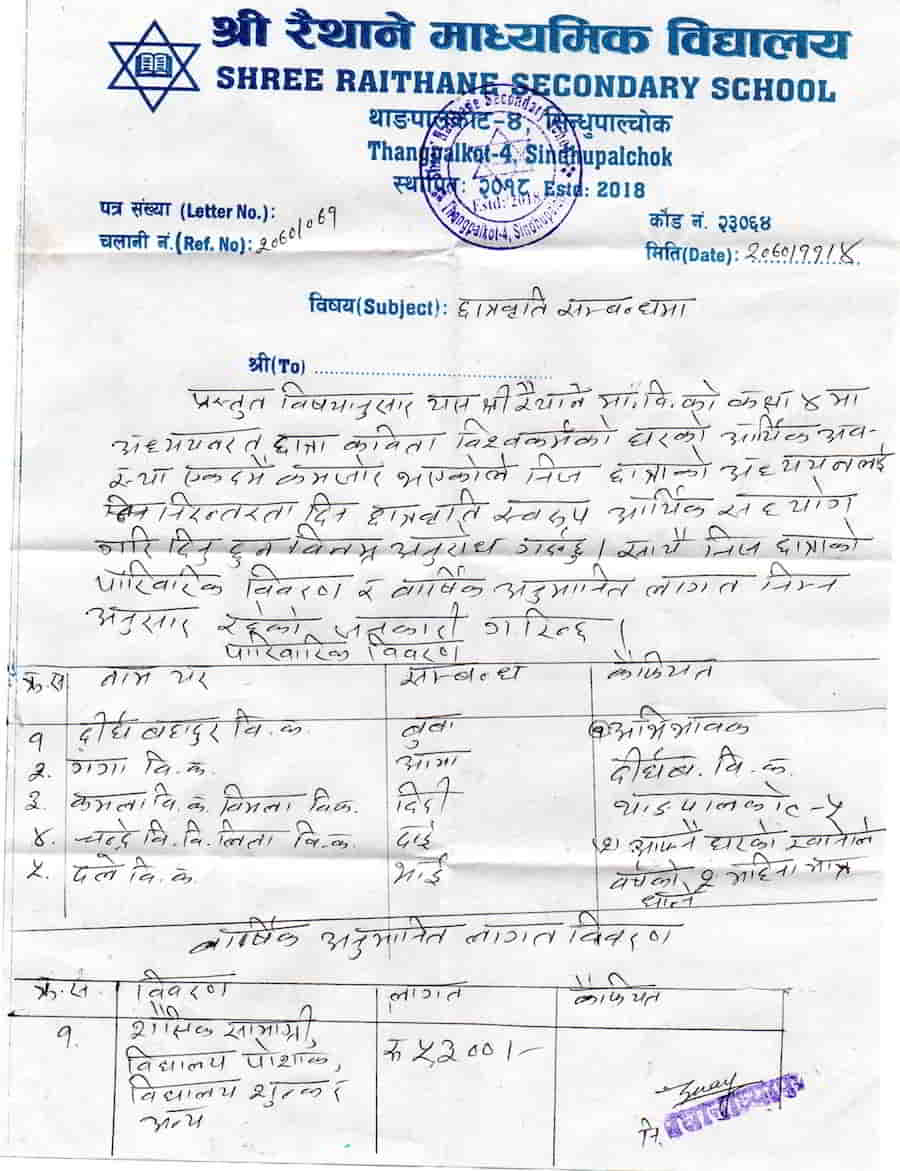 श्री रैथाने माध्यमिक विद्यालय
SHREE RAITHANE SECONDARY SCHOOL
थाङपालकोट-४, सिन्धुपाल्चोक
Thangpalkot-4, Sindhupalchok
स्थापित: २०१८ Estd: 2018
Shree Raithane Secondary School
Estd: 2018
Thangpalkot-4, Sindhupalchok
पत्र संख्या (Letter No.):
कोड नं. २३०६४
चलानी नं.(Ref. No): २०६०।०६१
मिति(Date): २०६०।११।४
विषय(Subject): छात्रवृति सम्बन्धमा
श्री(To)
प्रस्तुत विषयानुसार यस श्री रैथाने मा.वि.को कक्षा ४ मा
अध्ययनरत छात्रा कविता विश्वकर्मको घरको आर्थिक अव-
स्था एकदमै कमजोर भएकोले निज छात्राको अध्ययनलाई
निरन्तरता दिन छात्रवृति स्वरुप आर्थिक सहयोग
गरि दिनु हुन विनम्र अनुरोध गर्दछु । साथै निज छात्राको
पारिवारिक विवरण र वार्षिक अनुमानित लागत निम्न
अनुसार रहेको जानकारी गरिन्छ ।
पारिवारिक विवरण
क्र.स नाम थर सम्बन्ध कैफियत
१ दीर्घ बहादुर वि.क. बुबा १ अभिभावक
२. गंगा वि.क. आमा दीर्घब. वि.क.
३. कमला वि.क. विमला वि.क. दिदी थाङपालकोट-५
४. चन्द्रे वि.वि.लिता वि.क. दाई २ आफ्नै घरको खानाले
५. दले वि.क. भाई वर्षको २ महिना मात्र
धान्ने
वार्षिक अनुमानित लागत विवरण
क्र.स. विवरण लागत कैफियत
१. शैक्षिक सामाग्री,
विद्यालय पोशाक, रु ५३००।-
विद्यालय शुल्क र
अन्य
नि. प्रधानाध्यापक